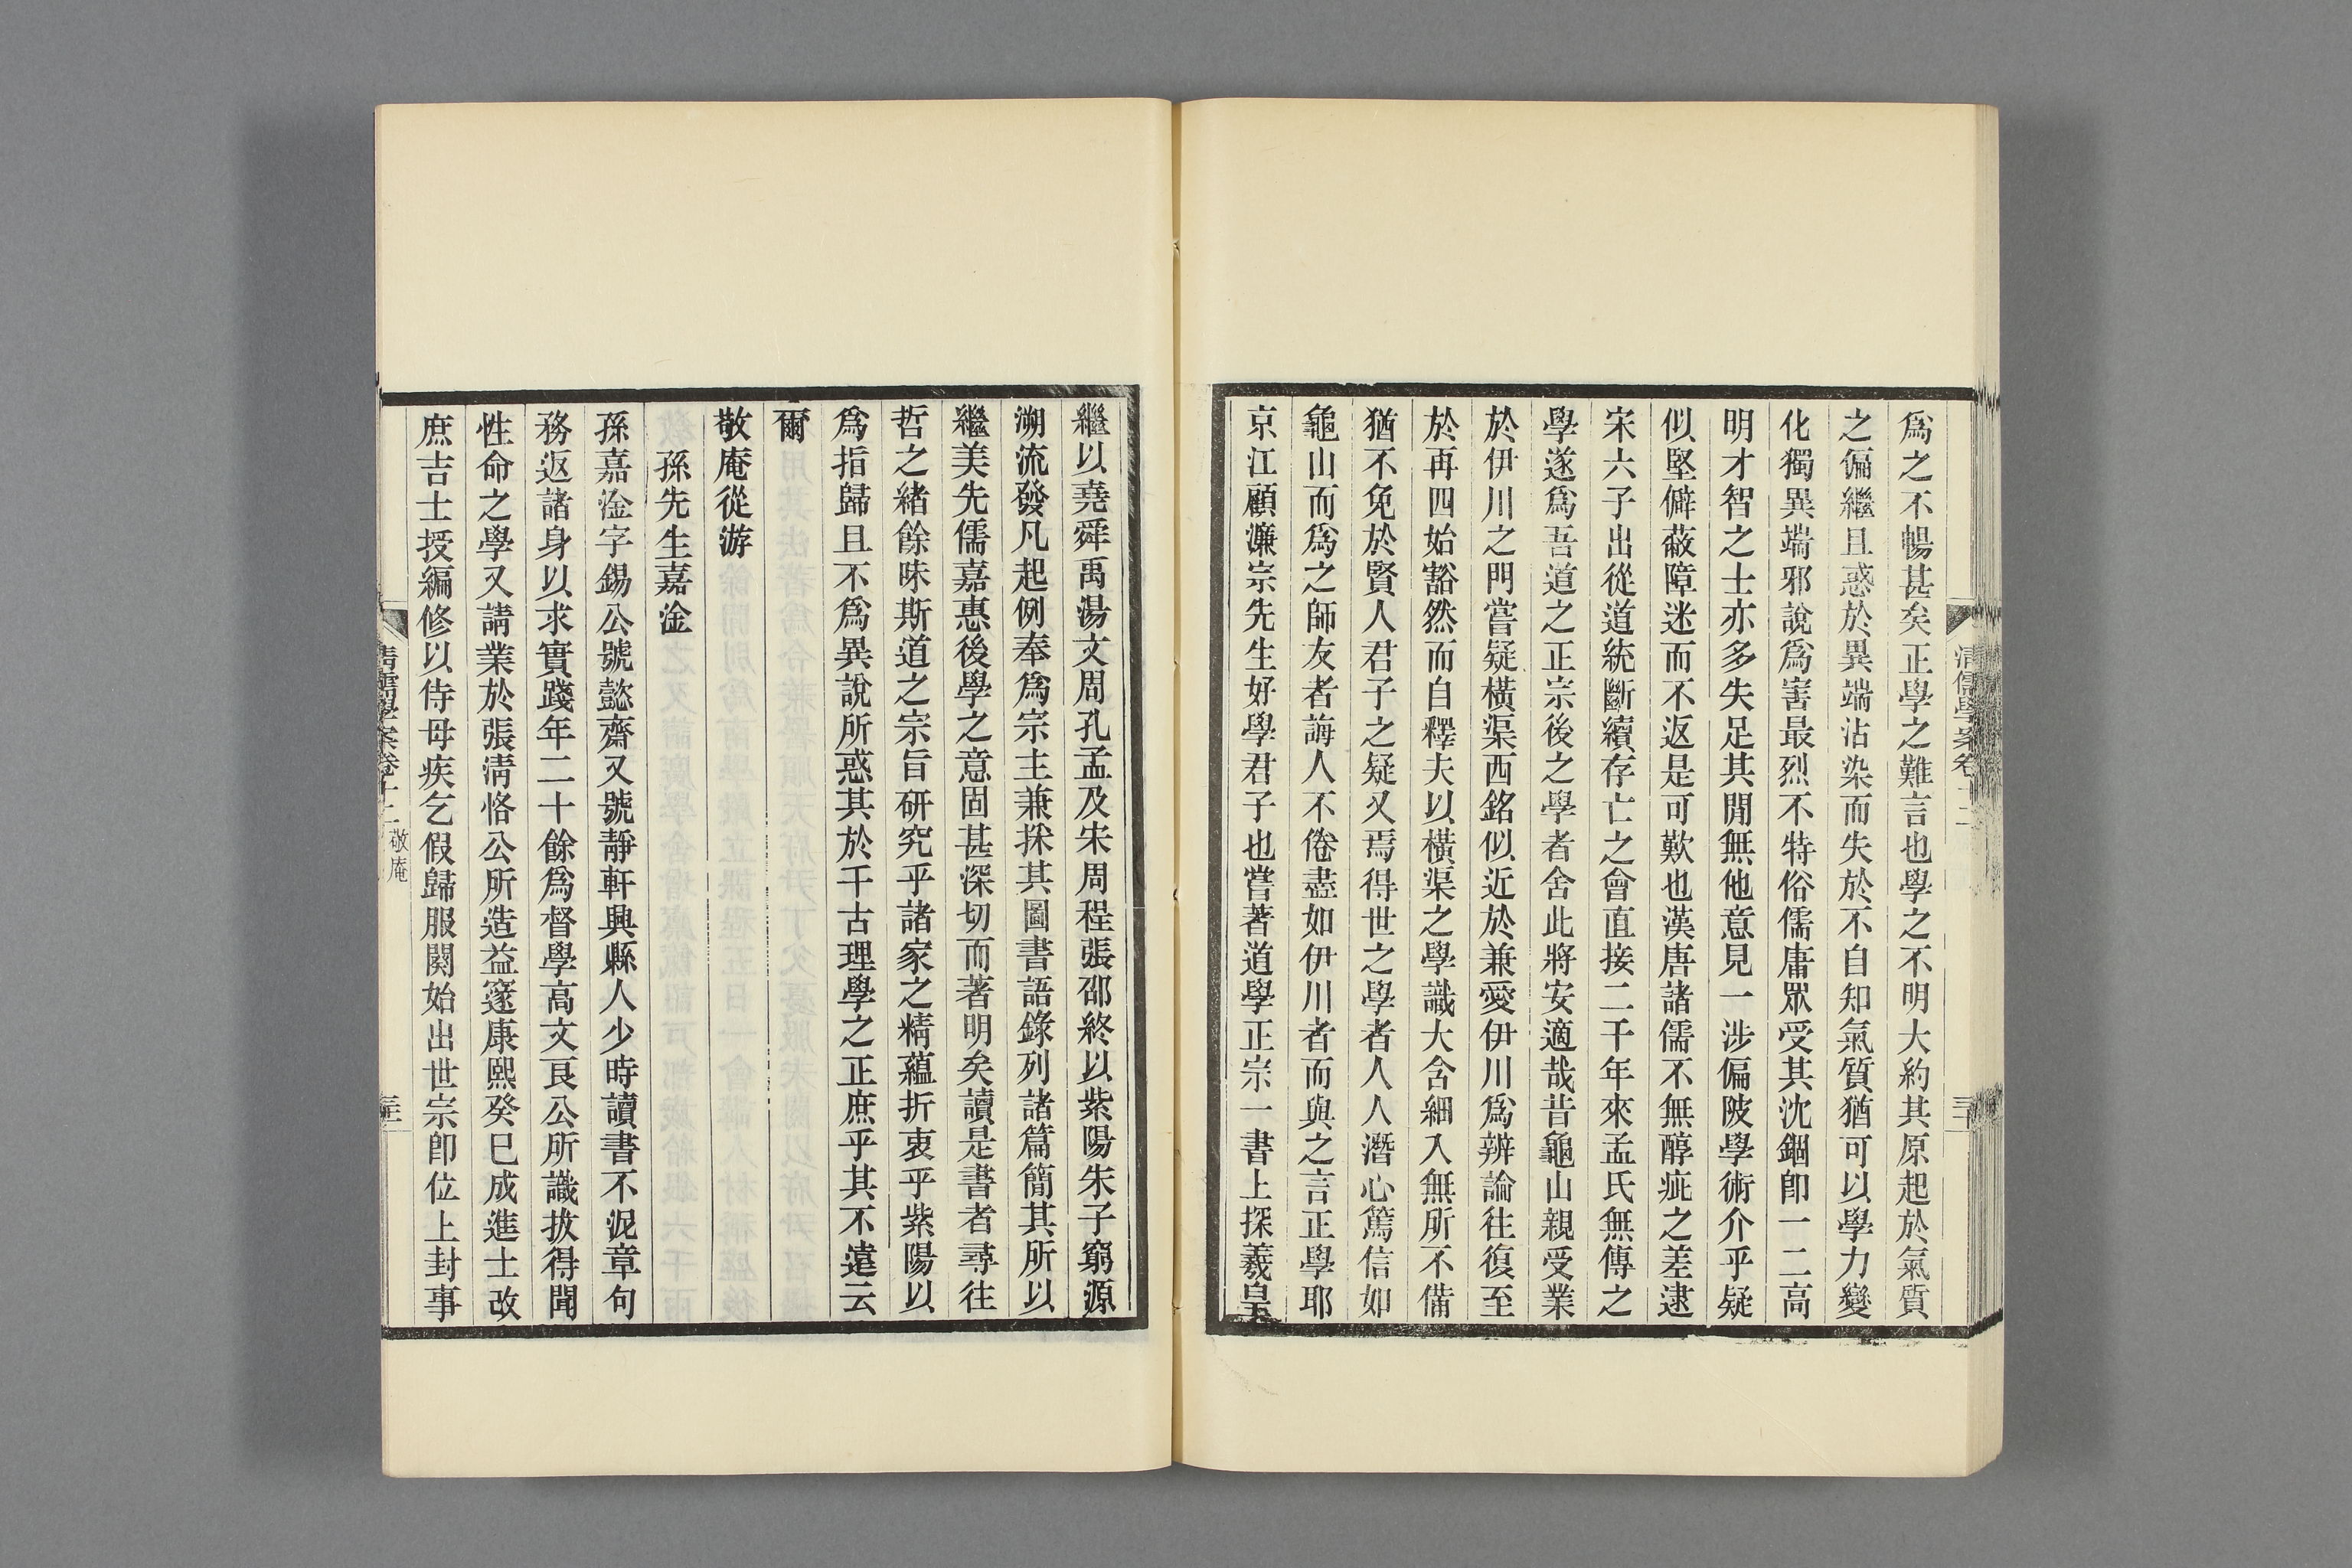 爲之不暢甚矣正學之難言也學之不明大約其原起於氣質
之偏繼且惑於異端沾染而失於不自知氣質猶可以學力變
化獨異端邪說爲害最烈不特俗儒庸眾受其沈錮卽一二高
明才智之士亦多失足其閒無他意見一涉偏陂學術介乎疑
似堅僻蔽障迷而不返是可歎也漢唐諸儒不無醇疵之差逮
宋六子出從道統斷續存亡之會直接二千年來孟氏無傳之
學遂爲吾道之正宗後之學者舍此將安適哉昔龜山親受業
於伊川之門嘗疑橫渠西銘似近於兼愛伊川爲辨論往復至
於再四始豁然而自釋夫以橫渠之學識大含細入無所不備
猶不免於賢人君子之疑又焉得世之學者人人潛心篤信如
龜山而爲之師友者誨人不倦盡如伊川者而與之言正學耶
京江顧濂宗先生好學君子也嘗著道學正宗一書上探羲皇
繼以堯舜禹湯文周孔孟及宋周程張邵終以紫陽朱子窮源
溯流發凡起例奉爲宗主兼採其圖書語錄列諸篇簡其所以
繼美先儒嘉惠後學之意固甚深切而著明矣讀是書者尋往
哲之緒餘味斯道之宗旨研究乎諸家之精蘊折衷乎紫陽以
爲指歸且不爲異說所惑其於千古理學之正庶乎其不遠云
爾
敬庵從游
孫先生嘉淦
孫嘉淦字錫公號懿齋又號靜軒興縣人少時讀書不泥章句
務返諸身以求實踐年二十餘爲督學高文良公所識拔得聞
性命之學又請業於張清恪公所造益邃康熙癸巳成進士改
庶吉士授編修以侍母疾乞假歸服闋始出世宗卽位上封事
清儒學案卷十二 敬庵